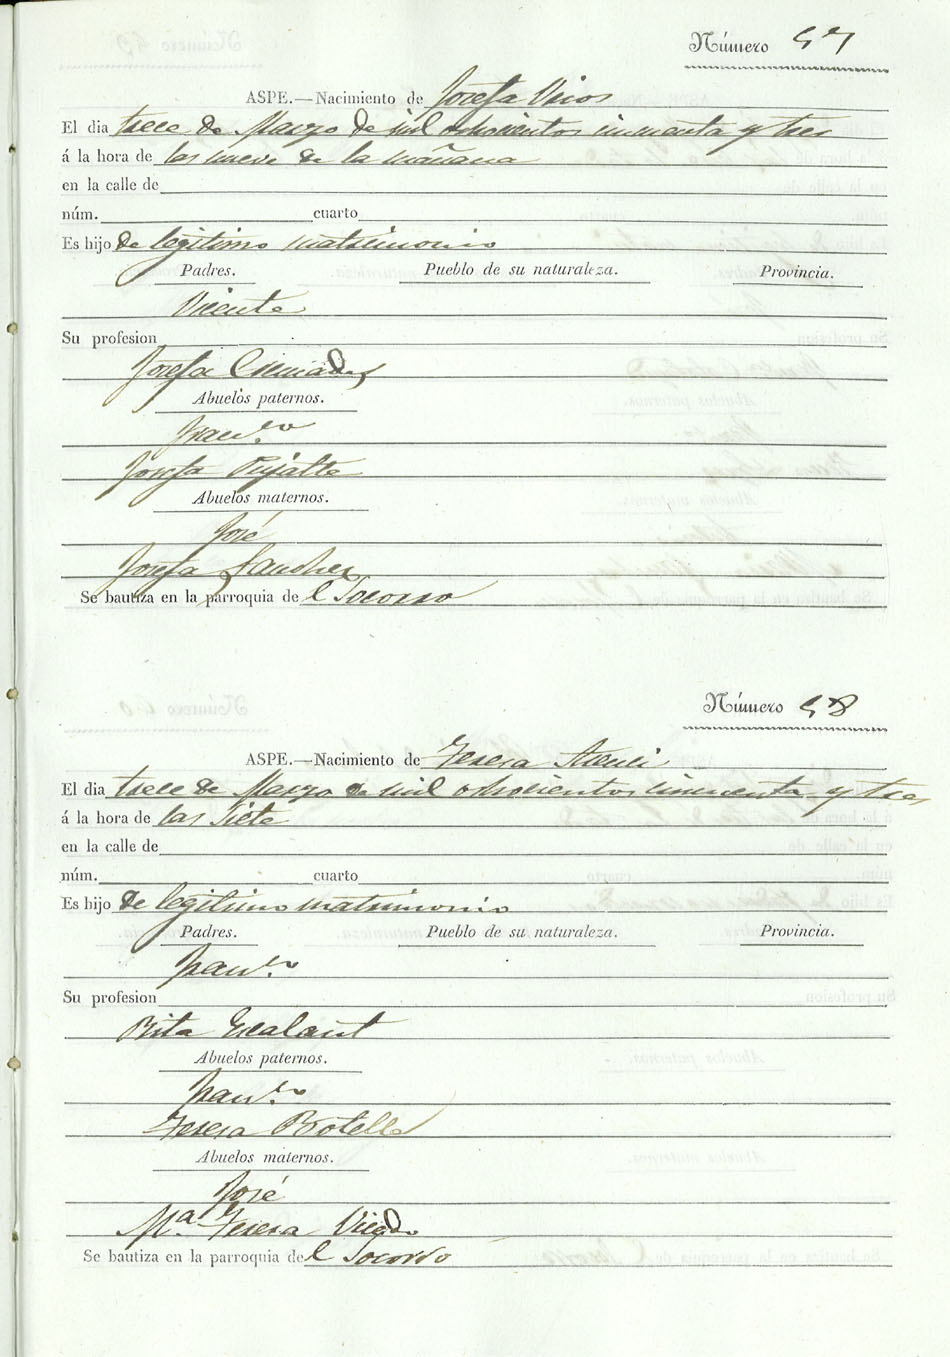 Número 57
ASPE.—Nacimiento de Josefa
El dia trece de Marzo de mil ochocientos cincuenta y tres
á la hora de las nueve de la mañana
en la calle de
núm. cuarto
Es hijo de legitimo matrimonio
Padres. Pueblo de su naturaleza. Provincia.
Vicente
Su profesion
Josefa
Abuelos paternos.
Fran.co
Josefa Pujalte
Abuelos maternos.
José
Josefa Sanchez
Se bautiza en la parroquia de l Socorro
Número 58
ASPE.—Nacimiento de Teresa
El dia trece de Marzo de mil ochocientos cincuenta y tres
á la hora de las siete
en la calle de
núm. cuarto
Es hijo de legitimo matrimonio
Padres. Pueblo de su naturaleza. Provincia.
Fran.co
Su profesion
Rita
Abuelos paternos.
Fran.co
Teresa Botella
Abuelos maternos.
José
M.a Teresa Vicedo
Se bautiza en la parroquia de l Socorro